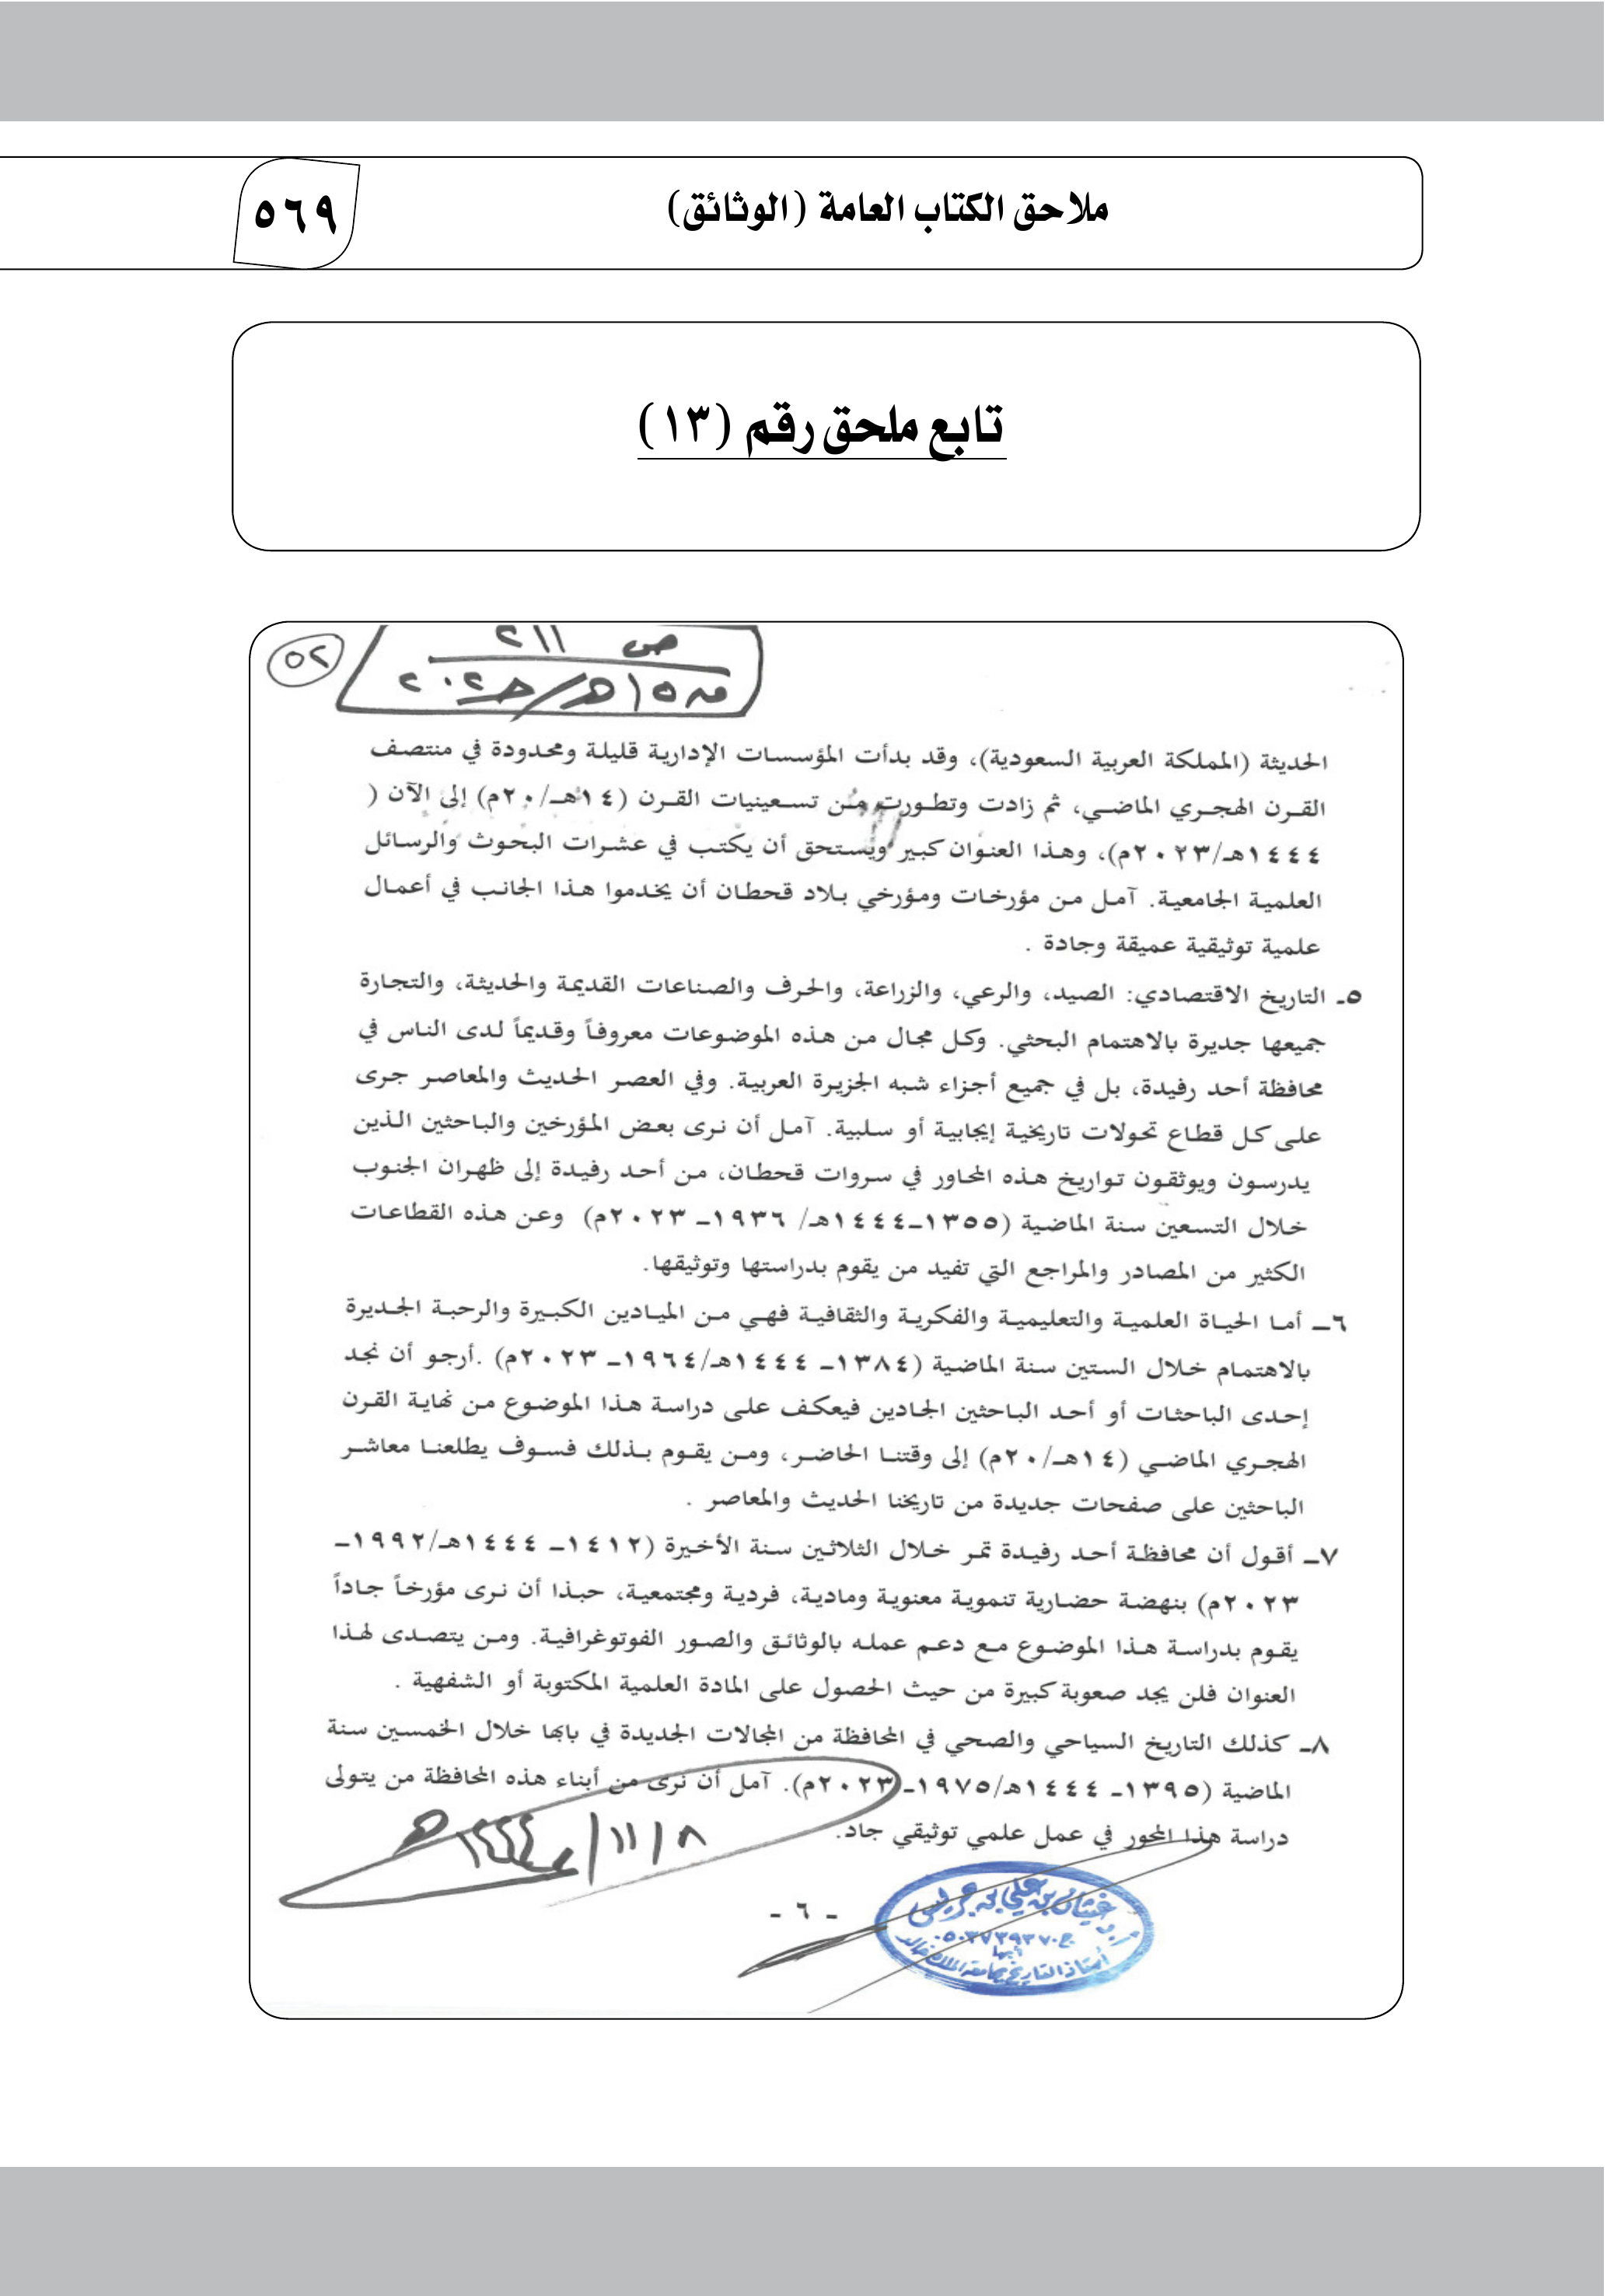 ملاحق الكتاب العامة (الوثائق)
٥٦٩
تابع ملحق رقم (١٣)
ص ٢١١
٥٢
الحديثة (المملكة العربية السعودية)، وقد بدأت المؤسسات الإدارية قليلة ومحدودة في منتصف
القرن الهجري الماضي، ثم زادت وتطورت من تسعينيات القرن (١٤هـ/٢٠م) إلى الآن (
١٤٤٤هـ/٢٠٢٣م)، وهذا العنوان كبير ويستحق أن يكتب في عشرات البحوث والرسائل
العلمية الجامعية. آمل من مؤرخات ومؤرخي بلاد قحطان أن يخدموا هذا الجانب في أعمال
علمية توثيقية عميقة وجادة .
٥ـ التاريخ الاقتصادي: الصيد، والرعي، والزراعة، والحرف والصناعات القديمة والحديثة، والتجارة
جميعها جديرة بالاهتمام البحثي. وكل مجال من هذه الموضوعات معروفاً وقديماً لدى الناس في
محافظة أحد رفيدة، بل في جميع أجزاء شبه الجزيرة العربية. وفي العصر الحديث والمعاصر جرى
على كل قطاع تحولات تاريخية إيجابية أو سلبية. آمل أن نرى بعض المؤرخين والباحثين الذين
يدرسون ويوثقون تواريخ هذه المحاور في سروات قحطان، من أحد رفيدة إلى ظهران الجنوب
خلال التسعين سنة الماضية (١٣٥٥ـ١٤٤٤هـ/ ١٩٣٦ـ ٢٠٢٣م) وعن هذه القطاعات
الكثير من المصادر والمراجع التي تفيد من يقوم بدراستها وتوثيقها.
٦ـ أما الحياة العلمية والتعليمية والفكرية والثقافية فهي من الميادين الكبيرة والرحبة الجديرة
بالاهتمام خلال الستين سنة الماضية (١٣٨٤ـ ١٤٤٤هـ/١٩٦٤ـ ٢٠٢٣م) .أرجو أن نجد
إحدى الباحثات أو أحد الباحثين الجادين فيعكف على دراسة هذا الموضوع من نهاية القرن
الهجري الماضي (١٤هـ/٢٠م) إلى وقتنا الحاضر، ومن يقوم بذلك فسوف يطلعنا معاشر
الباحثين على صفحات جديدة من تاريخنا الحديث والمعاصر .
٧ـ أقول أن محافظة أحد رفيدة تمر خلال الثلاثين سنة الأخيرة (١٤١٢ـ ١٤٤٤هـ/١٩٩٢ـ
٢٠٢٣م) بنهضة حضارية تنموية معنوية ومادية، فردية ومجتمعية، حبذا أن نرى مؤرخاً جاداً
يقوم بدراسة هذا الموضوع مع دعم عمله بالوثائق والصور الفوتوغرافية. ومن يتصدى لهذا
العنوان فلن يجد صعوبة كبيرة من حيث الحصول على المادة العلمية المكتوبة أو الشفهية .
٨ـ كذلك التاريخ السياحي والصحي في المحافظة من المجالات الجديدة في بابها خلال الخمسين سنة
الماضية (١٣٩٥ـ ١٤٤٤هـ/١٩٧٥ـ ٢٠٢٣م). آمل أن نرى من أبناء هذه المحافظة من يتولى
دراسة هذا المحور في عمل علمي توثيقي جاد.
٨/١١/١٤٤٤هـ
- ٦ -
غيثان بن علي بن جريس
أبها
أستاذ التاريخ بجامعة الملك خالد